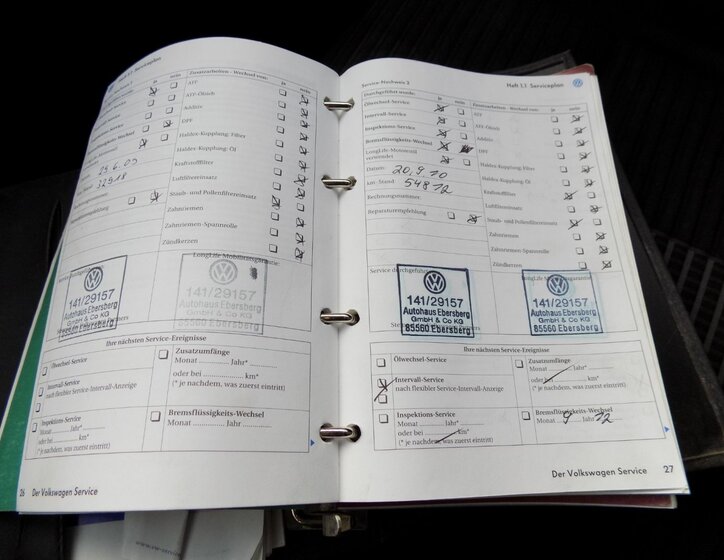 Heft 1.1 Serviceplan
ja nein
Zusatzarbeiten - Wechsel von: ja nein
ATF
ATF-Ölsieb
Additiv
DPF
Haldex-Kupplung: Filter
Haldex-Kupplung: Öl
Kraftstofffilter
Luftfiltereinsatz
Staub- und Pollenfiltereinsatz
Zahnriemen
Zahnriemen-Spannrolle
Zündkerzen
25.6.09
32918
LongLife Mobilitätsgarantie:
141/29157
Autohaus Ebersberg
GmbH & Co KG
85560 Ebersberg
141/29157
Autohaus Ebersberg
GmbH & Co KG
85560 Ebersberg
Ihre nächsten Service-Ereignisse
Ölwechsel-Service
Intervall-Service
nach flexibler Service-Intervall-Anzeige
Inspektions-Service
Monat .......... Jahr*..........
oder bei .......... km*
(* je nachdem, was zuerst eintritt)
Zusatzumfänge
Monat .......... Jahr*..........
oder bei .......... km*
(* je nachdem, was zuerst eintritt)
Bremsflüssigkeits-Wechsel
Monat .......... Jahr..........
26 Der Volkswagen Service
Service-Nachweis 2
Heft 1.1 Serviceplan
Durchgeführt wurde: ja nein
Ölwechsel-Service
Intervall-Service
Inspektions-Service
Bremsflüssigkeits-Wechsel
LongLife-Motorenöl
verwendet
Datum: 20.9.10
km-Stand: 54812
Rechnungsnummer:
Reparaturempfehlung
Zusatzarbeiten - Wechsel von: ja nein
ATF
ATF-Ölsieb
Additiv
DPF
Haldex-Kupplung: Filter
Haldex-Kupplung: Öl
Kraftstofffilter
Luftfiltereinsatz
Staub- und Pollenfiltereinsatz
Zahnriemen
Zahnriemen-Spannrolle
Zündkerzen
Service durchgeführt
LongLife Mobilitätsgarantie:
141/29157
Autohaus Ebersberg
GmbH & Co KG
85560 Ebersberg
141/29157
Autohaus Ebersberg
GmbH & Co KG
85560 Ebersberg
Ihre nächsten Service-Ereignisse
Ölwechsel-Service
Intervall-Service
nach flexibler Service-Intervall-Anzeige
Inspektions-Service
Monat .......... Jahr*..........
oder bei .......... km*
(* je nachdem, was zuerst eintritt)
Zusatzumfänge
Monat .......... Jahr*..........
oder bei .......... km*
(* je nachdem, was zuerst eintritt)
Bremsflüssigkeits-Wechsel
Monat 9 Jahr 12
Der Volkswagen Service 27